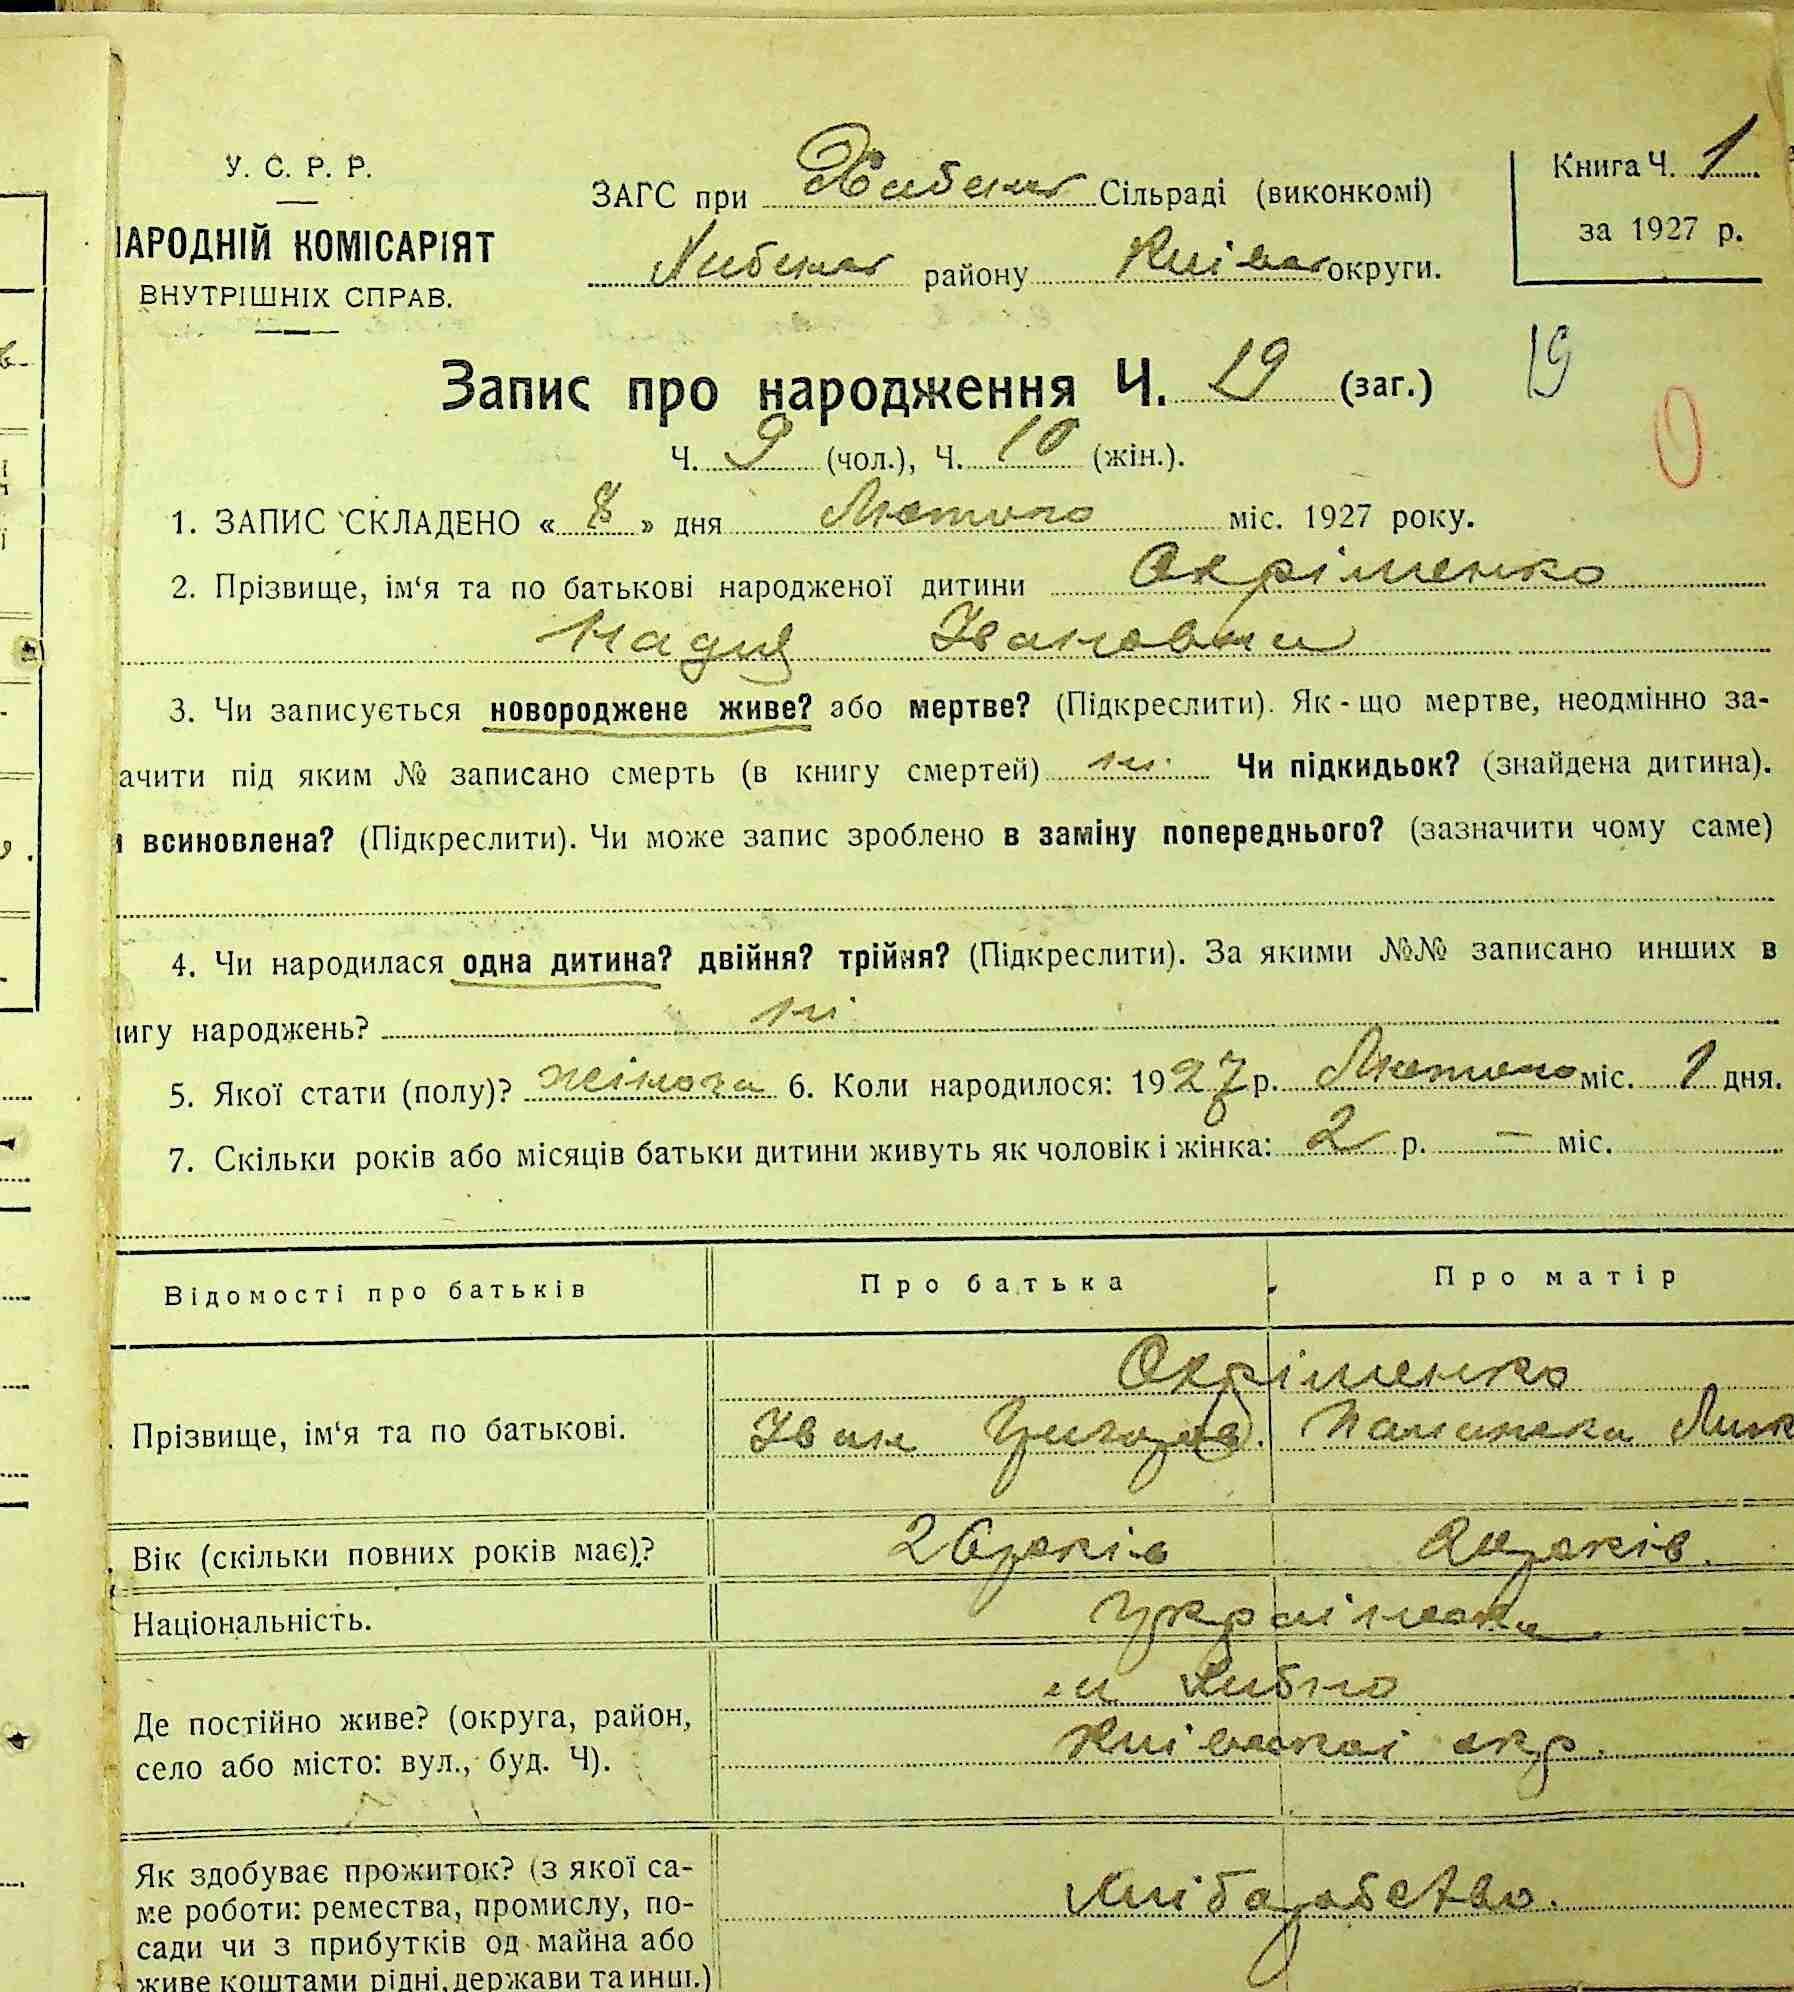 У. С. Р. Р.
АРОДНІЙ КОМІСАРІЯТ
ВНУТРІШНІХ СПРАВ.
ЗАГС при Хабенск Сільраді (виконкомі)
району Київськ округи.
Книга Ч. 1
за 1927 р.
Запис про народження Ч. 19 (заг.) 19
Ч. 9 (чол.), Ч. 10 (жін.).
1. ЗАПИС СКЛАДЕНО « 8 » дня Лютого міс. 1927 року.
2. Прізвище, ім‘я та по батькові народженої дитини Охріменко
Надія Івановна
3. Чи записується новороджене живе? або мертве? (Підкреслити). Як-що мертве, неодмінно за-
ачити під яким № записано смерть (в книгу смертей) ні. Чи підкидьок? (знайдена дитина).
и всиновлена? (Підкреслити). Чи може запис зроблено в заміну попереднього? (зазначити чому саме)
4. Чи народилася одна дитина? двійня? трійня? (Підкреслити). За якими №№ записано инших в
нигу народжень? ні
5. Якої стати (полу)? жіноча 6. Коли народилося: 1927 р. Лютого міс. 1 дня.
7. Скільки років або місяців батьки дитини живуть як чоловік і жінка: 2 р. — міс.
Відомості про батьків Про батька Про матір
Охріменко
Прізвище, ім‘я та по батькові. Іван Григоров.
Вік (скільки повних років має)? 26 років років.
Національність. Українськ
Де постійно живе? (округа, район,
село або місто: вул., буд. Ч).
м Хабно
Київської окр.
Як здобуває прожиток? (з якої са-
ме роботи: ремества, промислу, по-
сади чи з прибутків од майна або
живе коштами рідні, держави та инш.)
хліборобство.